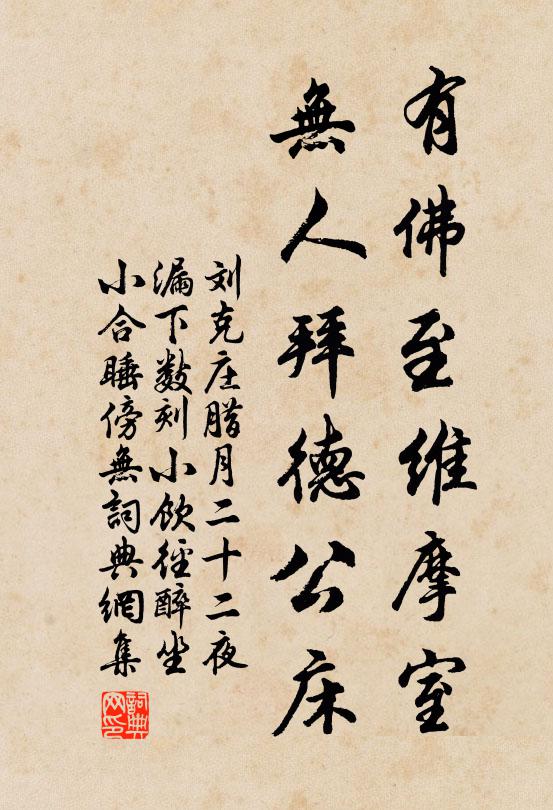 有佛至维摩室
無人拜德公床
刘克庄腊月二十二夜
漏下数刻小飲徑醉坐
小合睡傍無詞典網集
詞典网印